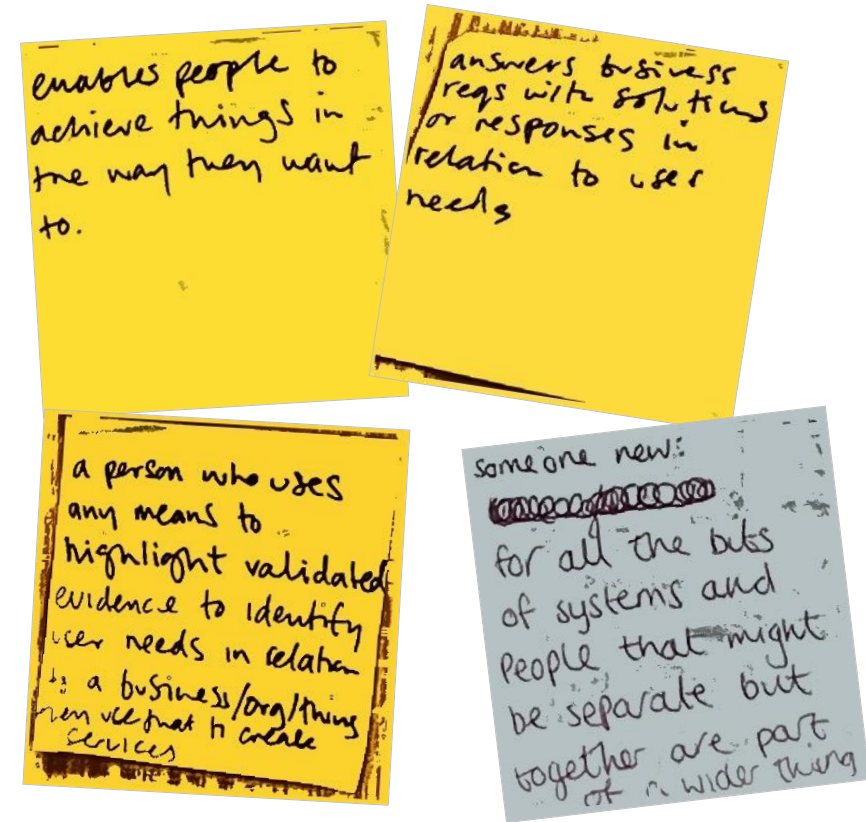 enables people to
achieve things in
the way they want
to.
answers business
reqs with solutions
or responses in
relation to user
needs
a person who uses
any means to
highlight validated
evidence to identify
user needs in relation
to a business/org/thing
then use that to create
services
someone new:
for all the bits
of systems and
people that might
be separate but
together are part
of a wider thing